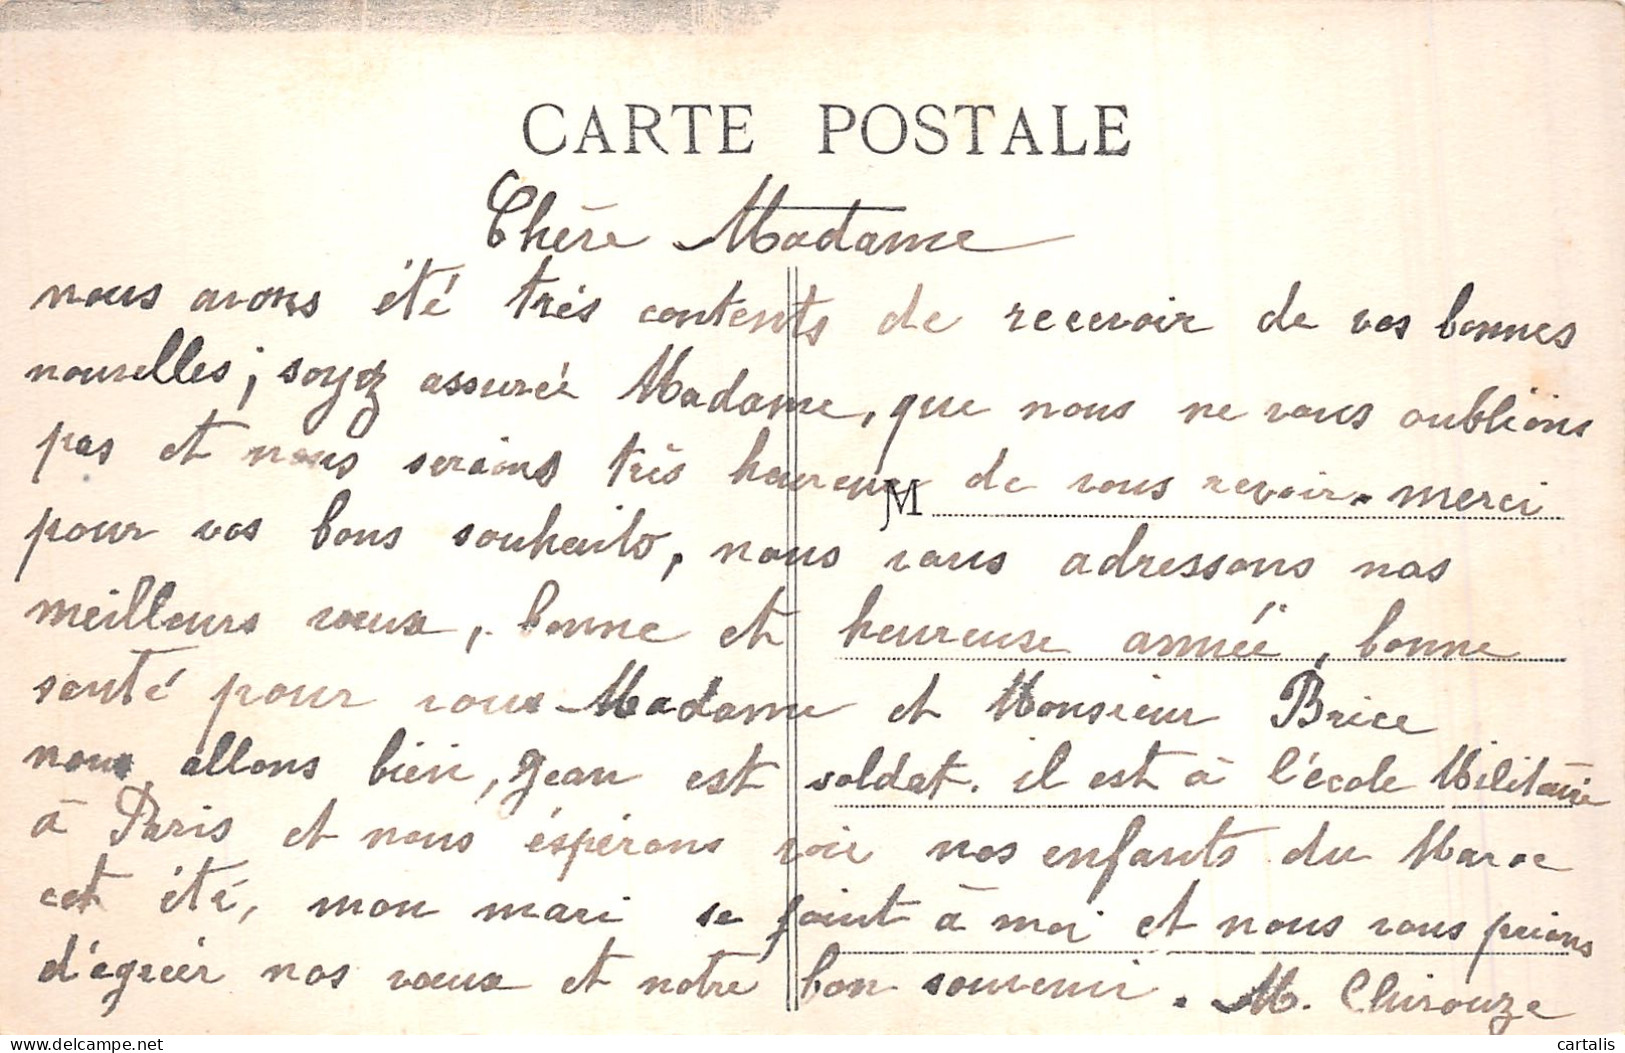 CARTE POSTALE
Chère Madame
nous avons été très contents de recevoir de vos bonnes
nouvelles; soyez assurée Madame, que nous ne vous oublions
pas et nous serions très heureux de vous revoir. merci
JM
pour vos bons souhaits, nous vous adressons nos
meilleurs vœux, bonne et heureuse année, bonne
santé pour vous Madame et Monsieur Brice
nous allons bien, Jean est soldat. il est à l'école Militaire
à Paris et nous éspérons voir nos enfants du Maroc
cet été, mon mari se joint à moi et nous vous prions
d'agréer nos vœux et notre bon souvenir. M. Chirouze
delcampe.net
cartalis